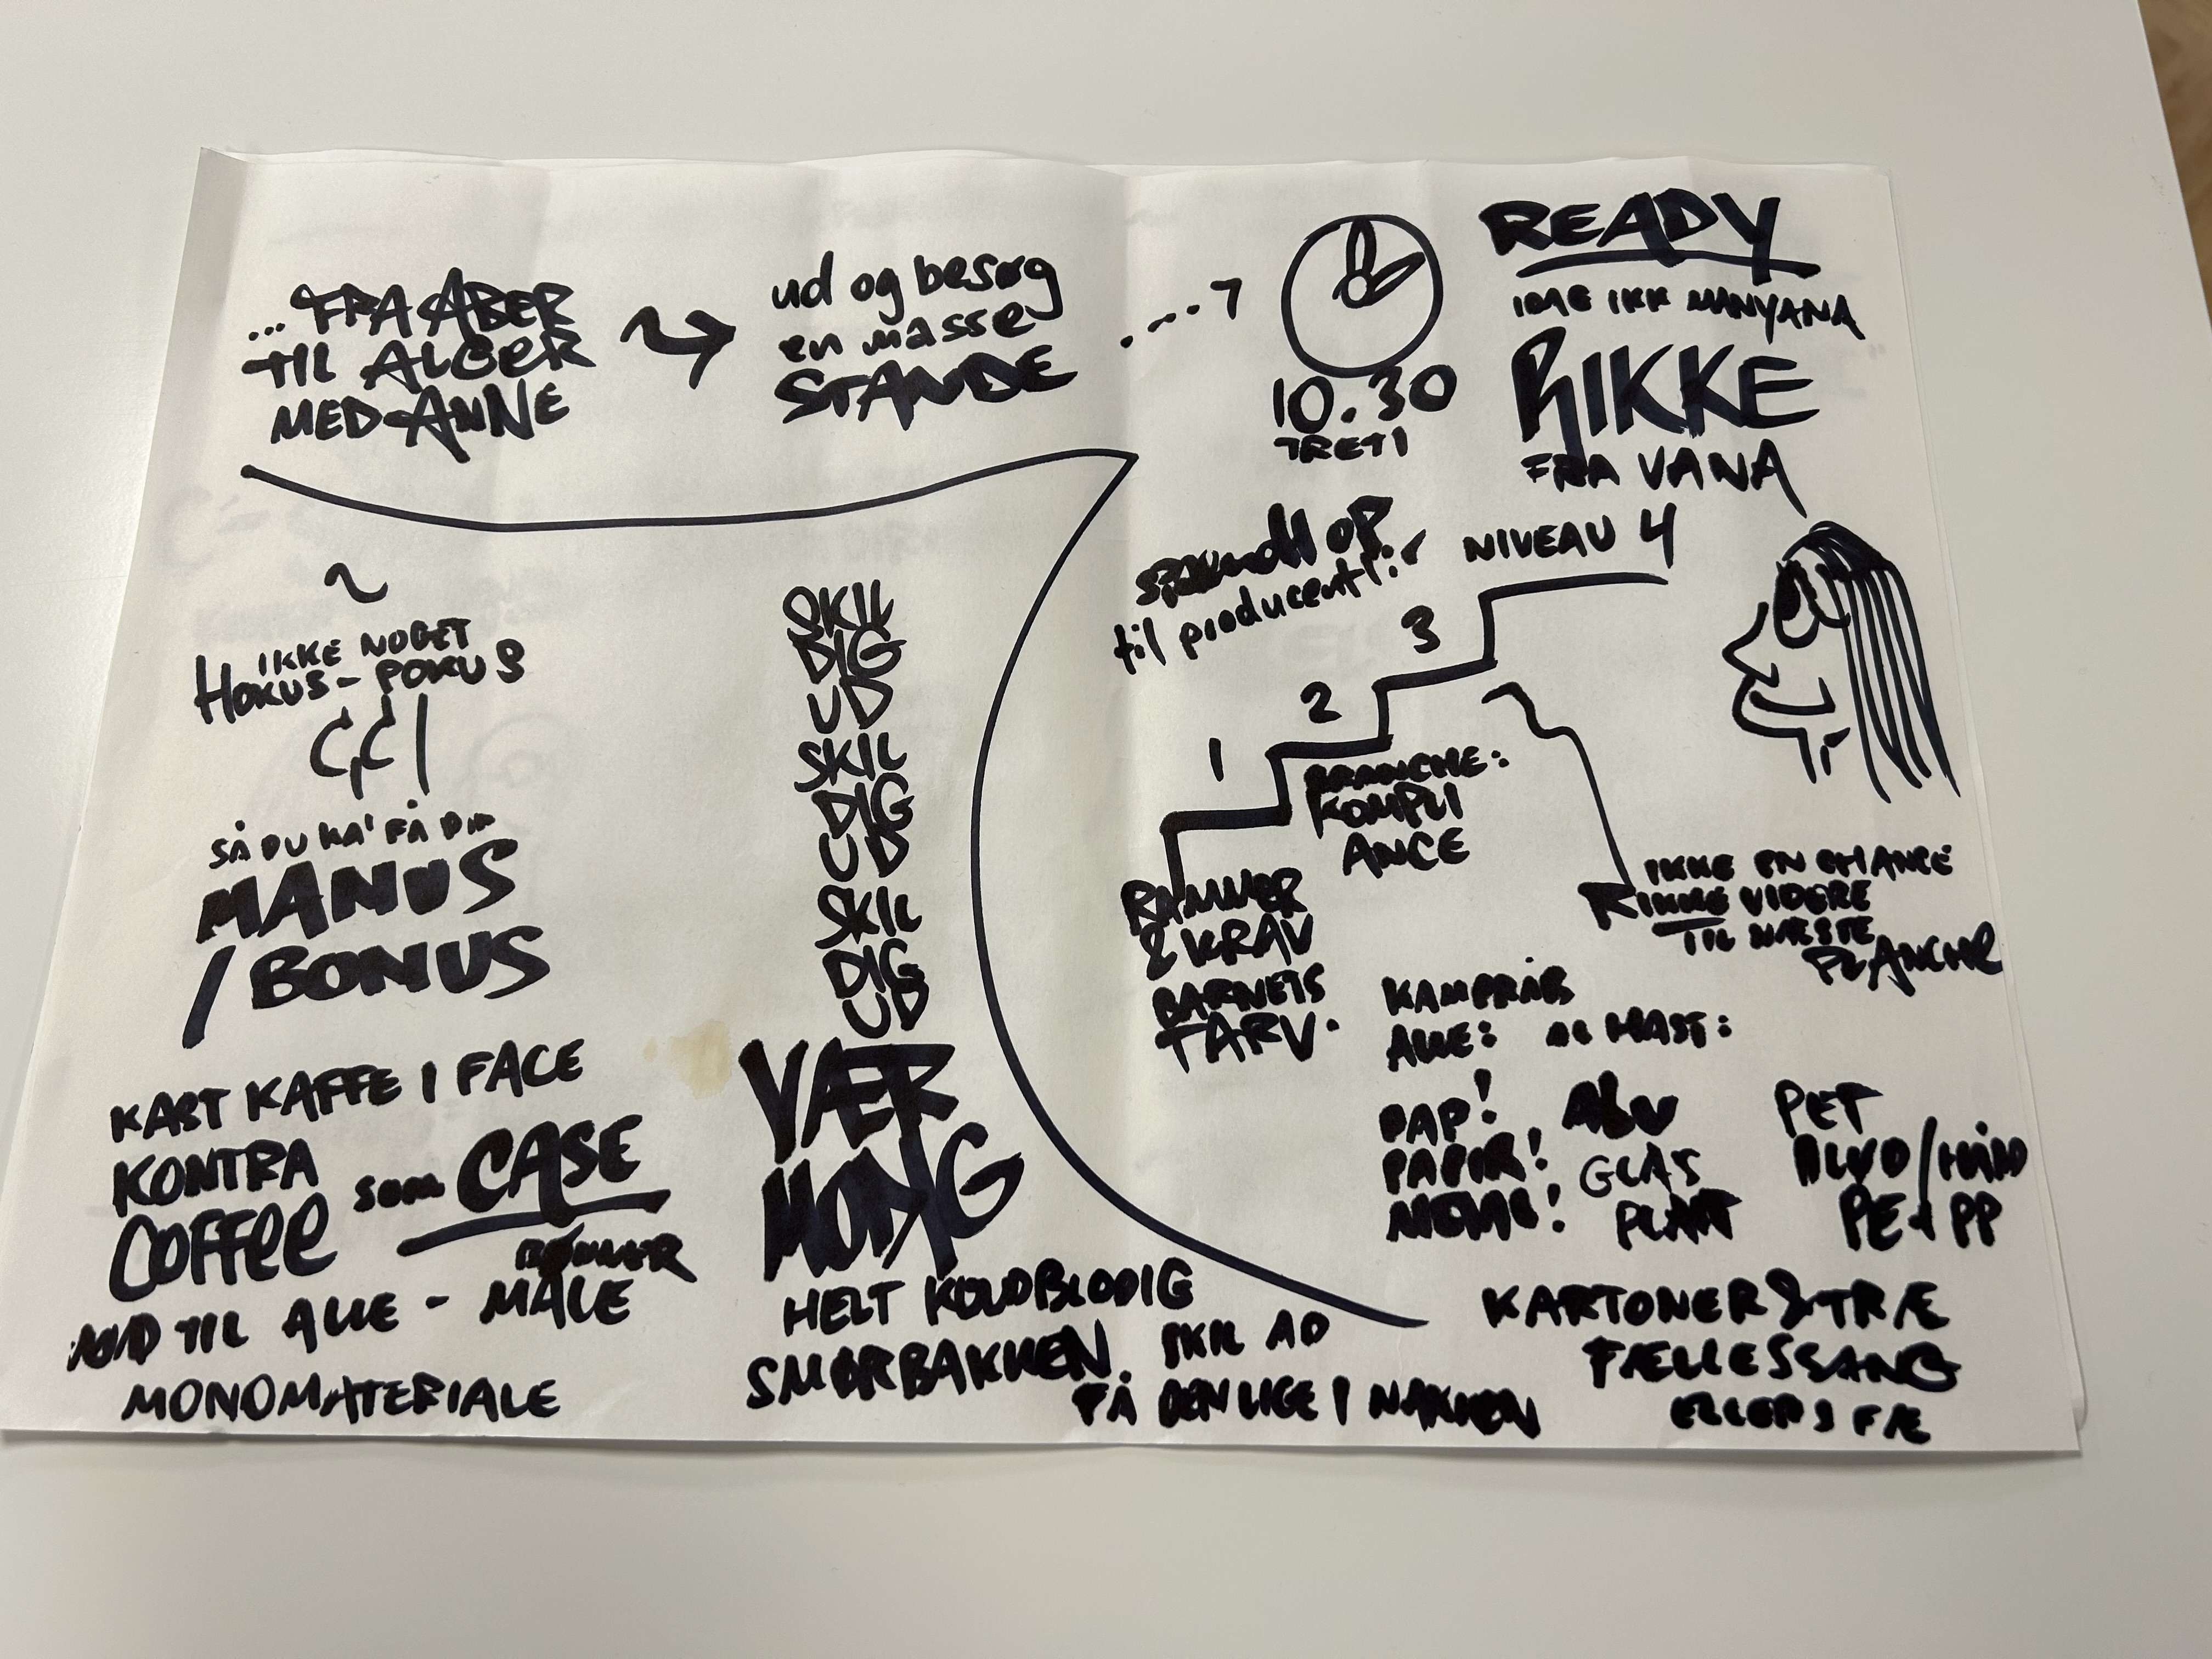 ... FRA ABER
TIL ALGER
MED ANNE
ud og besøg
en masse
STANDE
10.30
TRETI
READY
IDAG IKK MANYANA
RIKKE
FRA VANA
IKKE NOGET
HOKUS-POKUS
SÅ DU KA' FÅ DIN
MANUS
/ BONUS
KAST KAFFE I FACE
KONTRA
COFFEE som CASE
BØNNER
TIL ALLE - MALE
MONOMATERIALE
SKIL
DIG
UD
SKIL
DIG
UD
SKIL
DIG
UD
VÆR
MODIG
HELT KOLDBLODIG
SMØRBAKKEN. SKIL AD
FÅ DEN LIGE I NAKKEN
OP
til producent
NIVEAU 4
3
2
1
BRANCHE:
KOMPLI
ANCE
RAMMER
& KRAV
BARNETS
TARV.
IKKE EN CHANCE
RIKKE VIDERE
TIL NÆSTE
PLANCHE
KAMPRÅB
ALLE: AL HAST:
PAP!
PAPIR!
METAL!
ALU
GLAS
PLAST
PET
BLØD/HÅRD
PE & PP
KARTONER & TRÆ
FÆLLESSANG
ELLERS FÆ